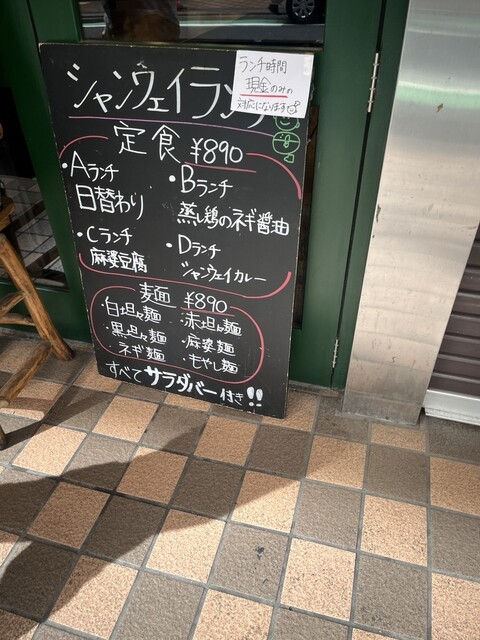 シャンウェイランチ
ランチ時間
現金のみの
対応になります
定食 ¥890
・Aランチ
日替わり
・Bランチ
蒸し鶏のネギ醤油
・Cランチ
麻婆豆腐
・Dランチ
シャンウェイカレー
麺 ¥890
・白坦々麺
・赤坦々麺
・黒坦々麺
・麻婆麺
・ネギ麺
・もやし麺
すべてサラダバー付き!!